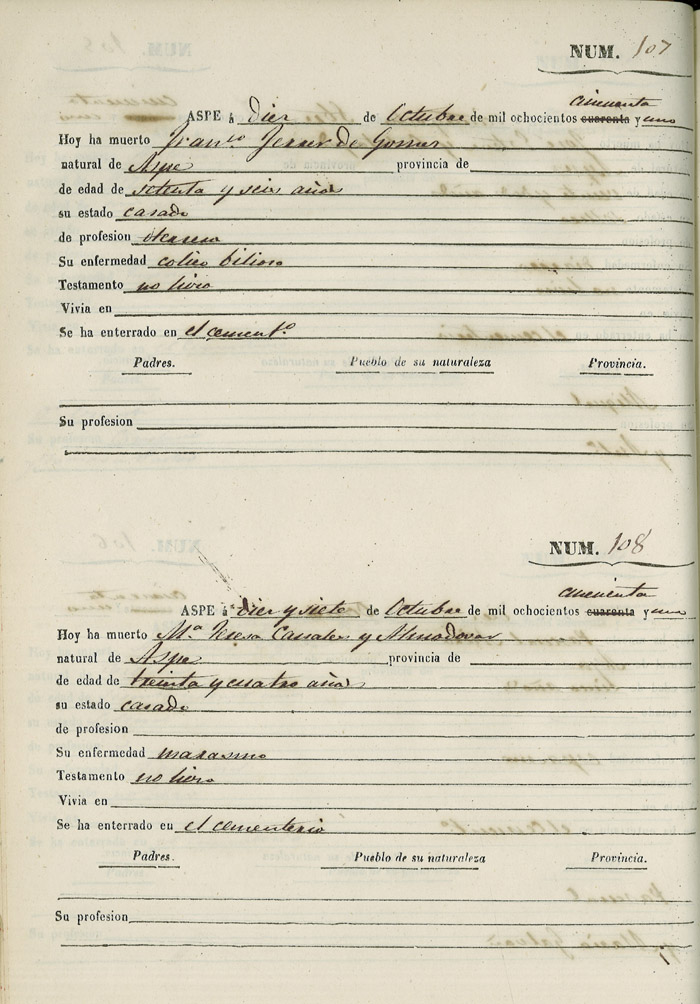 NUM. 107
cincuenta
ASPE á Diez de Octubre de mil ochocientos cuarenta y uno
Hoy ha muerto Fran.co de Gomes
natural de Aspe provincia de
de edad de setenta y seis años
su estado casado
de profesion
Su enfermedad colico bilioso
Testamento no hizo
Vivia en
Se ha enterrado en el cement.o
Padres. Pueblo de su naturaleza Provincia.
Su profesion
NUM. 108
cincuenta
ASPE á Diez y siete de Octubre de mil ochocientos cuarenta y uno
Hoy ha muerto M.a Teresa Canales y Almodovar
natural de Aspe provincia de
de edad de treinta y cuatro años
su estado casado
de profesion
Su enfermedad marasmo
Testamento no hizo
Vivia en
Se ha enterrado en el cementerio
Padres. Pueblo de su naturaleza Provincia.
Su profesion